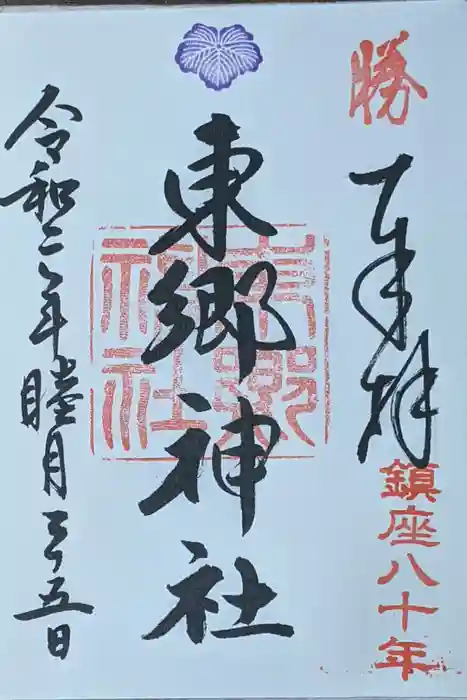 勝
奉拝
鎮座八十年
東郷神社
東郷神社
令和二年睦月二十五日